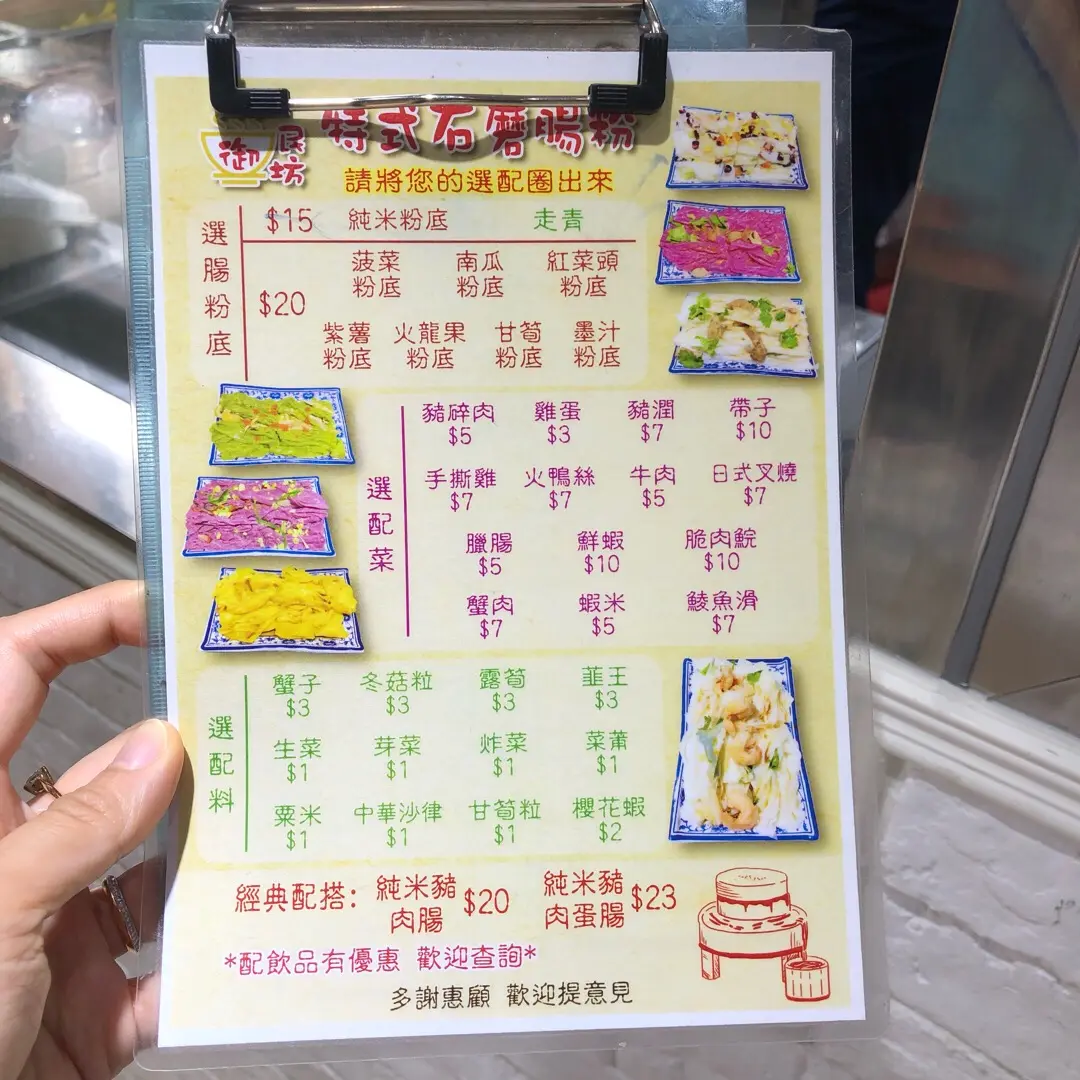 特式石磨腸粉
御
民坊
請將您的選配圈出來
選腸粉底
$15 純米粉底 走青
$20
菠菜 南瓜 紅菜頭
粉底 粉底 粉底
紫薯 火龍果 甘筍 墨汁
粉底 粉底 粉底 粉底
選配菜
豬碎肉 雞蛋 豬潤 帶子
$5 $3 $7 $10
手撕雞 火鴨絲 牛肉 日式叉燒
$7 $7 $5 $7
臘腸 鮮蝦 脆肉鯇
$5 $10 $10
蟹肉 蝦米 鯪魚滑
$7 $5 $7
選配料
蟹子 冬菇粒 露筍 韮王
$3 $3 $3 $3
生菜 芽菜 炸菜 菜莆
$1 $1 $1 $1
粟米 中華沙律 甘筍粒 櫻花蝦
$1 $1 $1 $2
經典配搭: 純米豬 $20 純米豬 $23
肉腸 肉蛋腸
*配飲品有優惠 歡迎查詢*
多謝惠顧 歡迎提意見